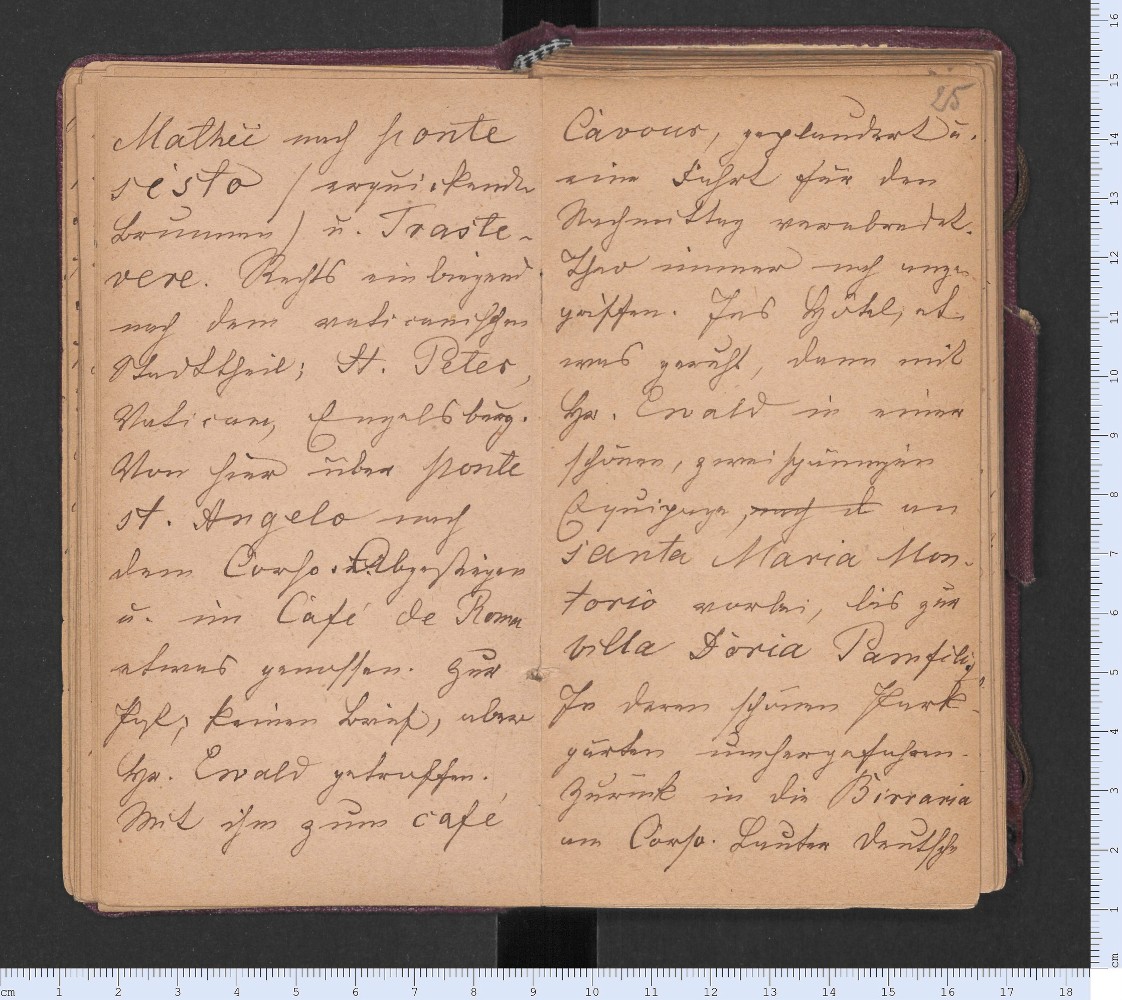 Matheï nach Ponte
sisto / erquickende
Brunnen / u. Traste-
vere. Rechts einbiegend
nach dem vaticanischen
Stadttheil; St. Peter,
Vatican, Engelsburg.
Von hier über Ponte
st. Angelo nach
dem Corso. Abgestiegen
u. im Café de Roma
etwas genossen. Zur
Post; keinen Brief, aber
Hr. Ewald getroffen.
Mit ihm zum café
25
Cavour, geplaudert u.
eine Fahrt für den
Nachmittag verabredet.
Theo immer noch ange-
griffen. Ins Hôtel, et-
was geruht, dann mit
Hr. Ewald in einer
schönen, zweispännigen
Equipage, nach d an
santa Maria Mon-
torio vorbei, bis zur
villa Doria Pamfilij.
In deren schönen Park-
gärten umhergefahren.
Zurück in die Birraria
am Corso. Lauter Deutsche